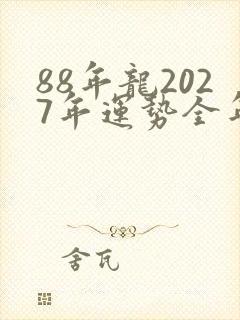 88年龍202
7年運勢全年
舍瓦